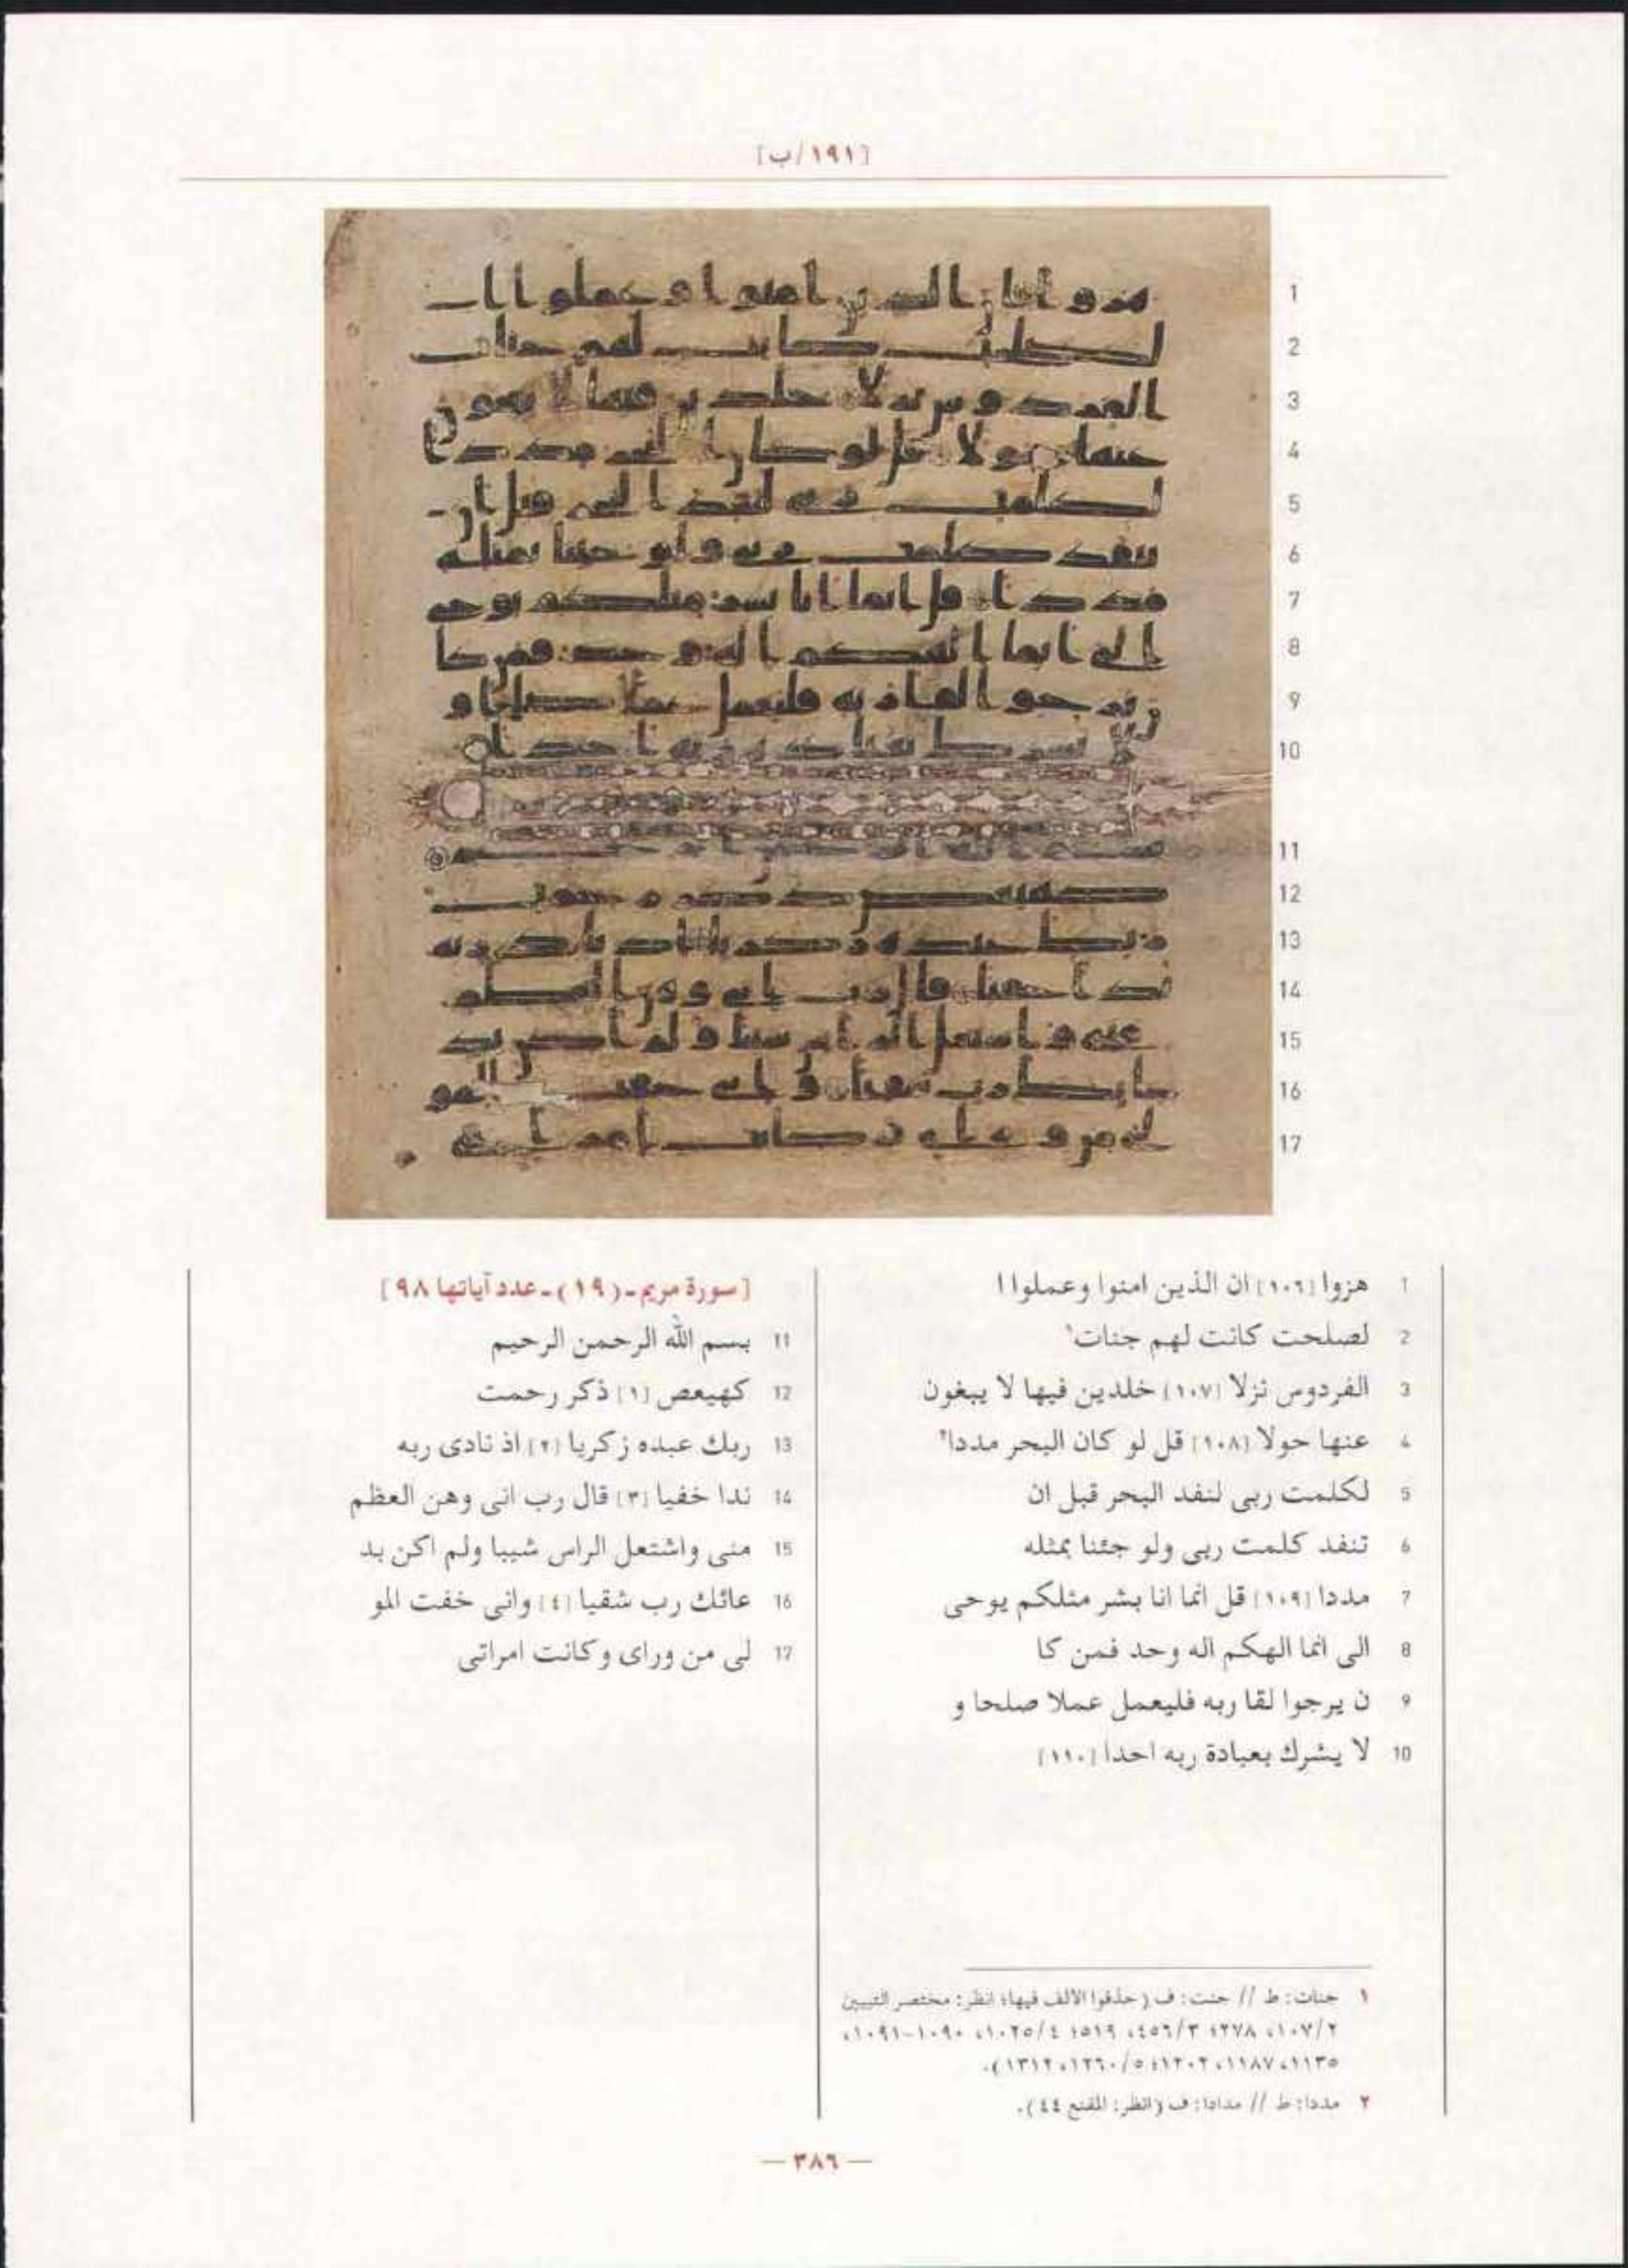 [١٩١/ب]
1 هزوا [١٠٦] ان الذين امنوا وعملوا ا
2 لصلحت كانت لهم جنات١
3 الفردوس نزلا [١٠٧] خلدين فيها لا يبغون
4 عنها حولا [١٠٨] قل لو كان البحر مددا٢
5 لكلمت ربى لنفد البحر قبل ان
6 تنفد كلمت ربى ولو جئنا بمثله
7 مددا [١٠٩] قل انما انا بشر مثلكم يوحى
8 الى انما الهكم اله وحد فمن كا
9 ن يرجوا لقا ربه فليعمل عملا صلحا و
10 لا يشرك بعبادة ربه احدا [١١٠]
[سورة مريم-(١٩)-عدد آياتها ٩٨]
11 بسم الله الرحمن الرحيم
12 كهيعص [١] ذكر رحمت
13 ربك عبده زكريا [٢] اذ نادى ربه
14 ندا خفيا [٣] قال رب انى وهن العظم
15 منى واشتعل الراس شيبا ولم اكن بد
16 عائك رب شقيا [٤] وانى خفت المو
17 لى من وراى وكانت امراتى
١ جنات: ط // جنت: ف (حذفوا الالف فيها؛ انظر: مختصر التبيين
٢/١٠٧، ٢٧٨؛ ٣/٤٥٦، ٥١٩؛ ٤/١٠٢٥، ١٠٩٠-١٠٩١،
١١٣٥، ١١٨٧، ١٢٠٢؛ ٥/١٢٦٠، ١٣١٢).
٢ مددا: ط // مدادا: ف (انظر: المقنع ٤٤).
— ٣٨٦ —